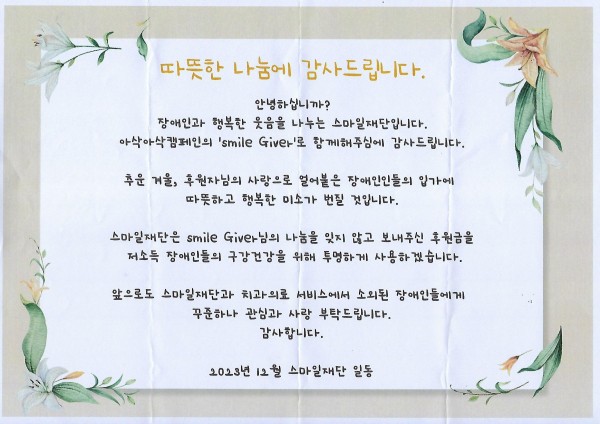 따뜻한 나눔에 감사드립니다.
안녕하십니까?
장애인과 행복한 웃음을 나누는 스마일재단입니다.
아삭아삭캠페인의 'smile Giver'로 함께해주심에 감사드립니다.
추운 겨울, 후원자님의 사랑으로 얼어붙은 장애인인들의 입가에
따뜻하고 행복한 미소가 번질 것입니다.
스마일재단은 smile Giver님의 나눔을 잊지 않고 보내주신 후원금을
저소득 장애인들의 구강건강을 위해 투명하게 사용하겠습니다.
앞으로도 스마일재단과 치과의료 서비스에서 소외된 장애인들에게
꾸준하나 관심과 사랑 부탁드립니다.
감사합니다.
2023년 12월 스마일재단 일동